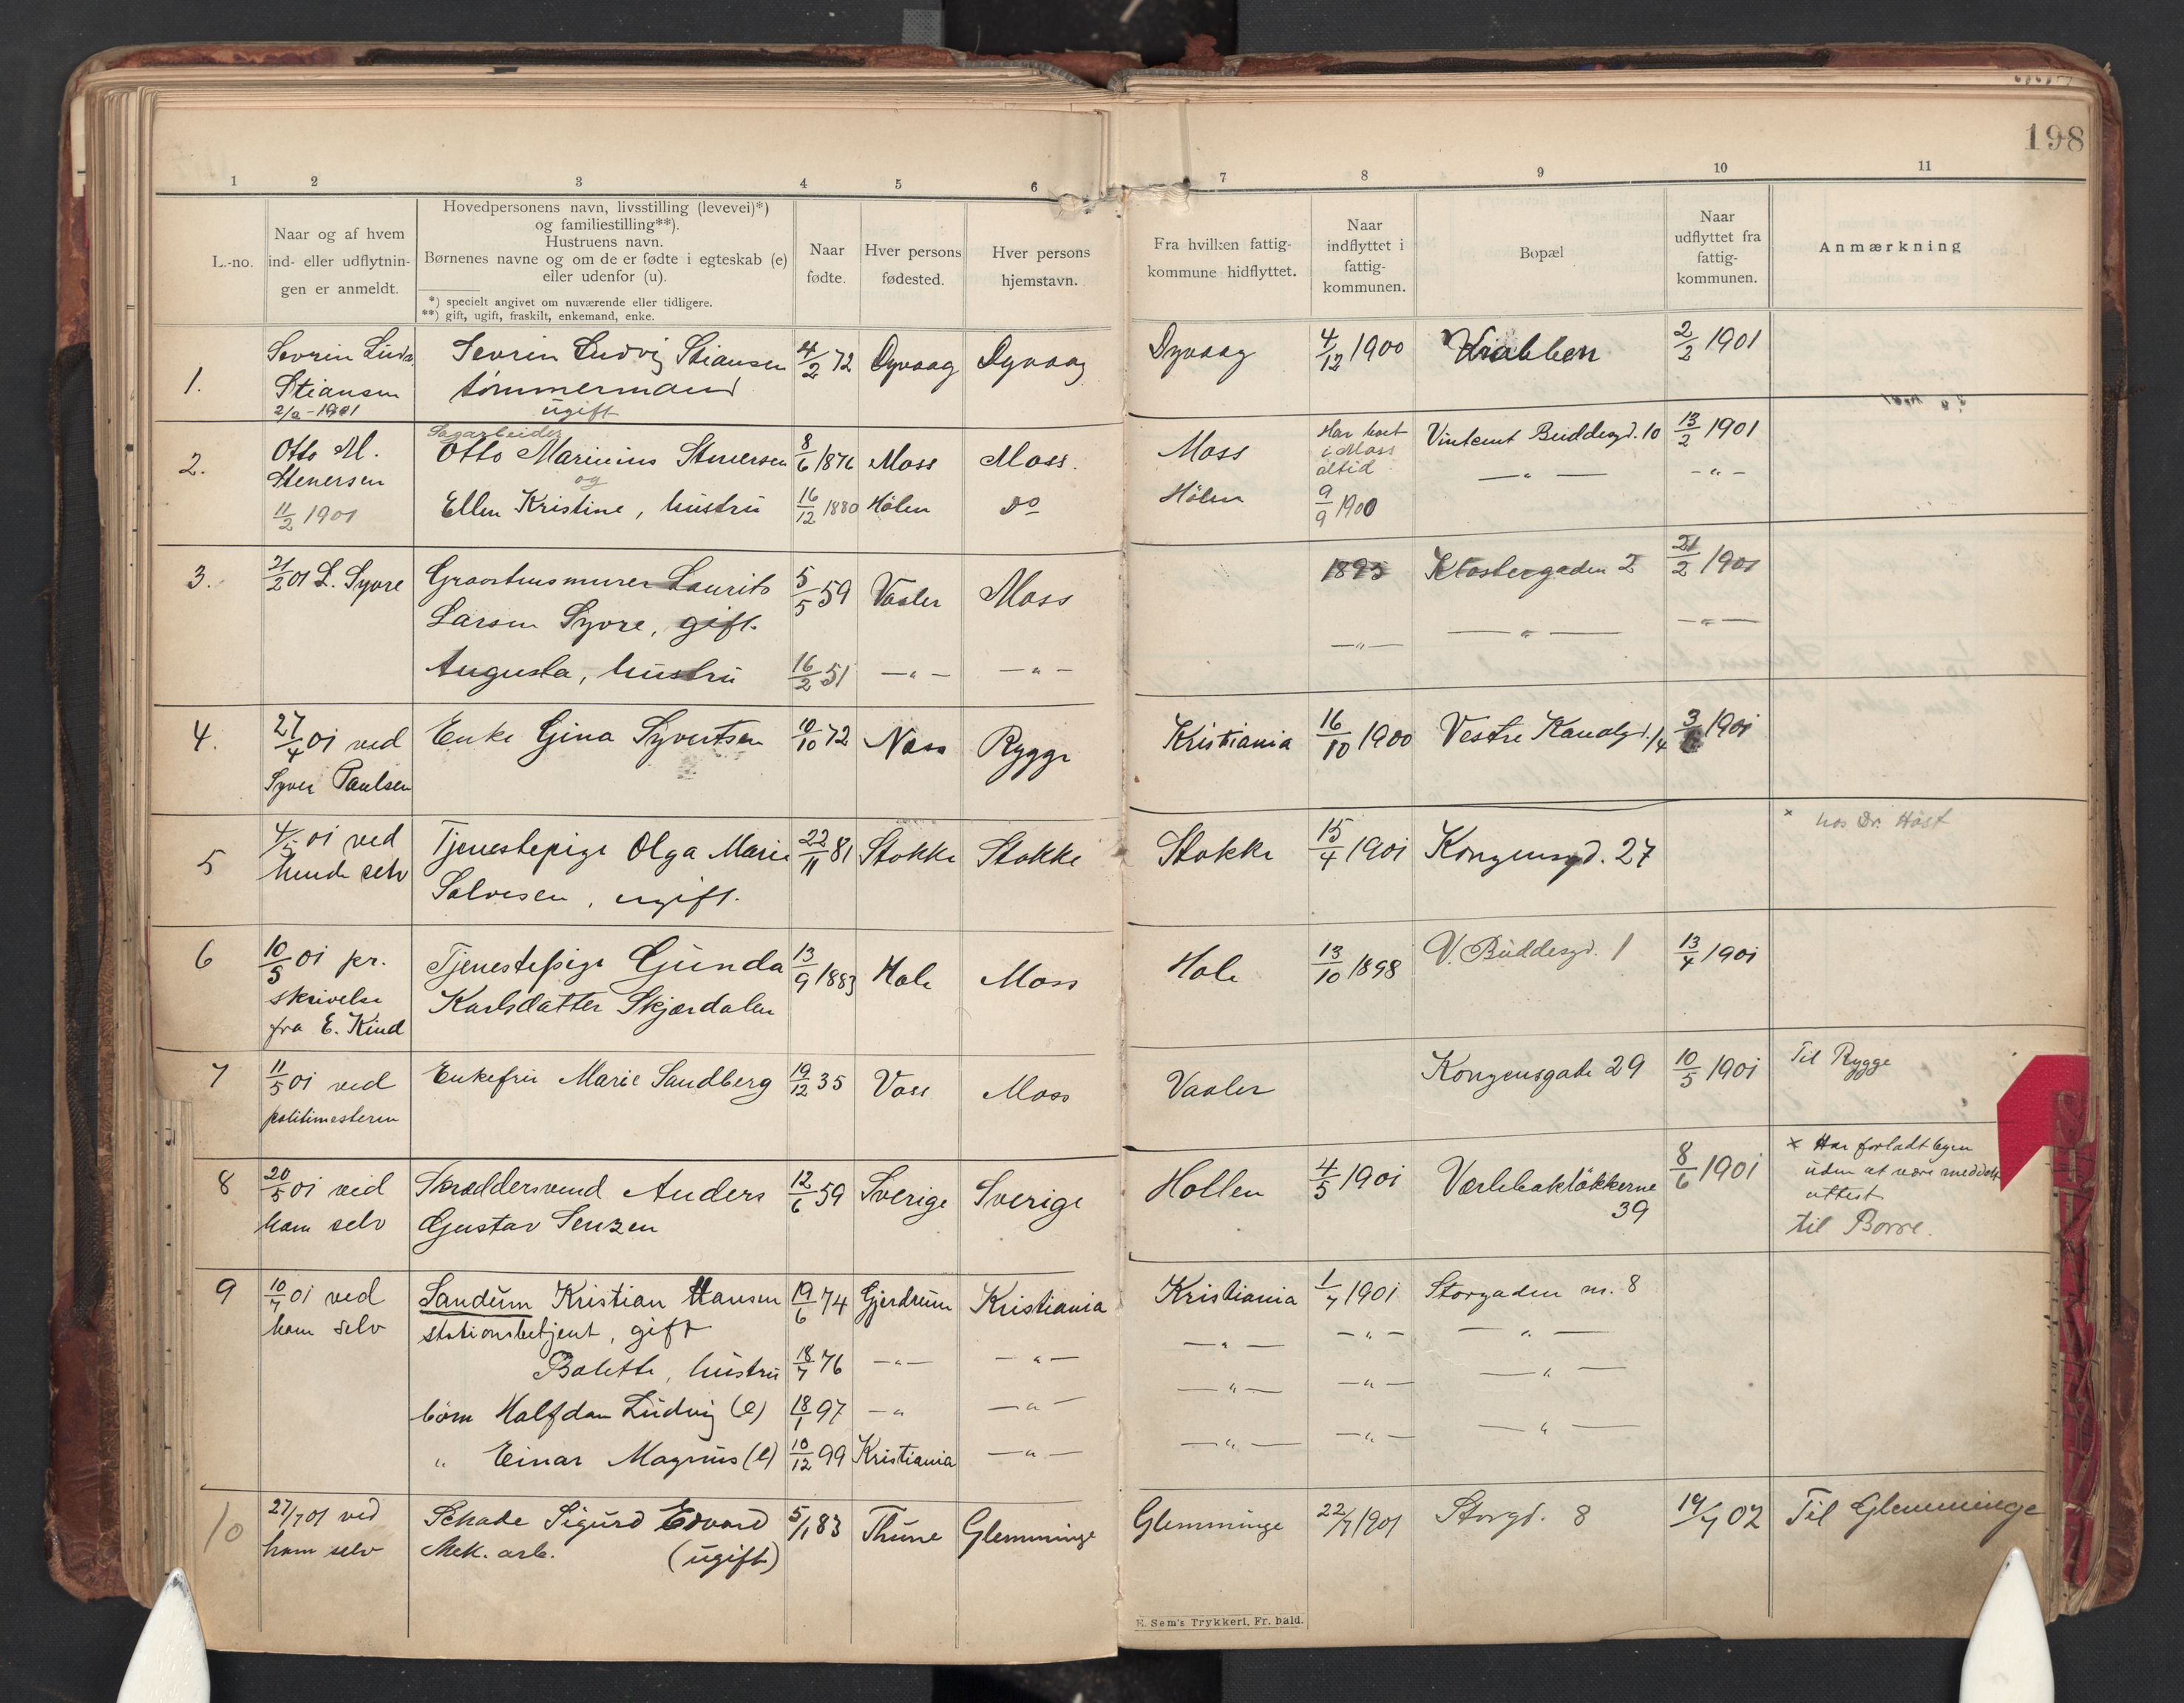 198
1 2 3 4 5 6 7 8 9 10 11
L.-no.
Naar og af hvem
ind- eller udflytnin-
gen er anmeldt.
Hovedpersonens navn, livsstilling (levevei)*)
og familiestilling**).
Hustruens navn.
Børnenes navne og om de er fødte i egteskab (e)
eller udenfor (u).
*) specielt angivet om nuværende eller tidligere.
**) gift, ugift, fraskilt, enkemand, enke.
Naar
fødte.
Hver persons
fødested.
Hver persons
hjemstavn.
Fra hvilken fattig-
kommune hidflyttet.
Naar
indflyttet i
fattig-
kommunen.
Bopæl
Naar
udflyttet fra
fattig-
kommunen.
Anmærkning
Sevrin Ludv. Sevrin Ludvig Stiansen 4/2 72 Dyvaag Dyvaag Dyvaag 4/12 1900 Krabben 2/2 1901
1. Stiansen tømmermand
2/2-1901 ugift
Sagarbeider
2. Otto M. Otto Marinius Stenersen 8/6 1876 Moss Moss. Moss Har boet i Moss altid Vintcent Buddesgd. 10 13/2 1901
Stenersen og — " — - " -
11/2 1901 Ellen Kristine, hustru 16/12 1880 Hølen do Hølen 9/9 1900
3. 21/2 01 L. Syvre Graastensmurer Laurits 5/5 59 Vaaler Moss 1895 Klostergaden 2 21/2 1901
Larsen Syvre, gift. — " — — " — — " —
Augusta, hustru 16/2 51 — " — — " —
4. 27/4 01 ved Enke Gina Syvertsen 10/10 72 Næss Rygge Kristiania 16/10 1900 Vestre Kanalgd. 14 3/6 1901
Syver Paulsen
5 4/5 01 ved Tjenestepige Olga Marie 22/11 81 Stokke Stokke Stokke 15/4 1901 Kongensgd. 27 × hos Dr. Høst
hende selv Salvesen, ugift.
6 10/5 01 pr. Tjenestepige Gunda 13/9 1883 Hole Moss Hole 13/10 1898 V. Buddesgd. 1 13/4 1901
skrivelse Karlsdatter Skjærdalen
fra E. Kind
7 11/5 01 ved Enkefru Marie Sandberg 19/12 35 Voss Moss Vaaler Kongensgade 29 10/5 1901 Til Rygge
politimesteren
8 20/5 01 ved Skræddersvend Anders 12/6 59 Sverige Sverige Hollen 4/5 1901 Værlebaksløkkerne 39 8/6 1901 × Har forladt byen
ham selv Gustav Senzen uden at være meddelt
attest
til Borre.
9 10/7 01 ved Sandum Kristian Hansen 19/6 74 Gjerdrum Kristiania Kristiania 1/7 1901 Storgaden nr. 8
ham selv stationsbetjent, gift — " — — " — — " —
Bolette, hustru 18/7 76 — " — — " — — " — — " — — " —
børn Halfdan Ludvig (e) 18/1 97 — " — " — — " — — " — — " —
" Einar Magnus (e) 10/12 99 Kristiania — " —
10 27/7 01 ved Schade Sigurd Edvard 5/1 83 Thune Glemminge Glemminge 22/7 1901 Storgd. 8 14/7 02 Til Glemminge
ham selv Mek. arb. (ugift)
E. Sem's Trykkeri, Fr. hald.